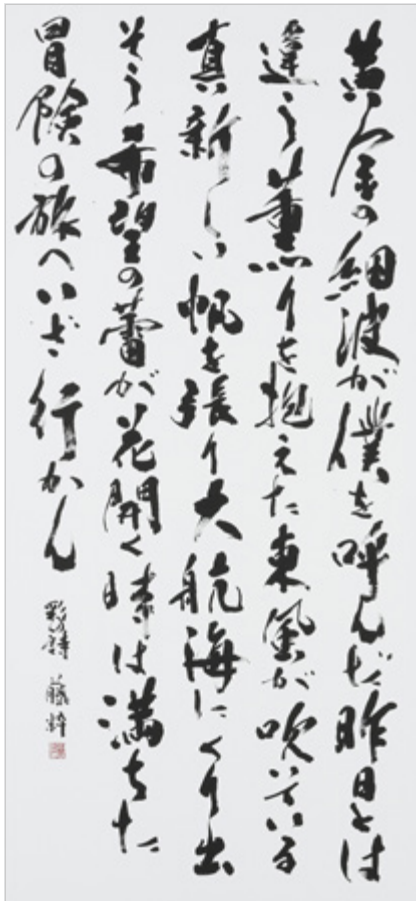 黄金の細波が僕を呼んだ昨日とは
違う薫りを抱えた東風が吹いている
真新しい帆を張り大航海にくり出
そう希望の蕾が花開く時は満ちた
冒険の旅へいざ行かん
彩の詩 藤粋